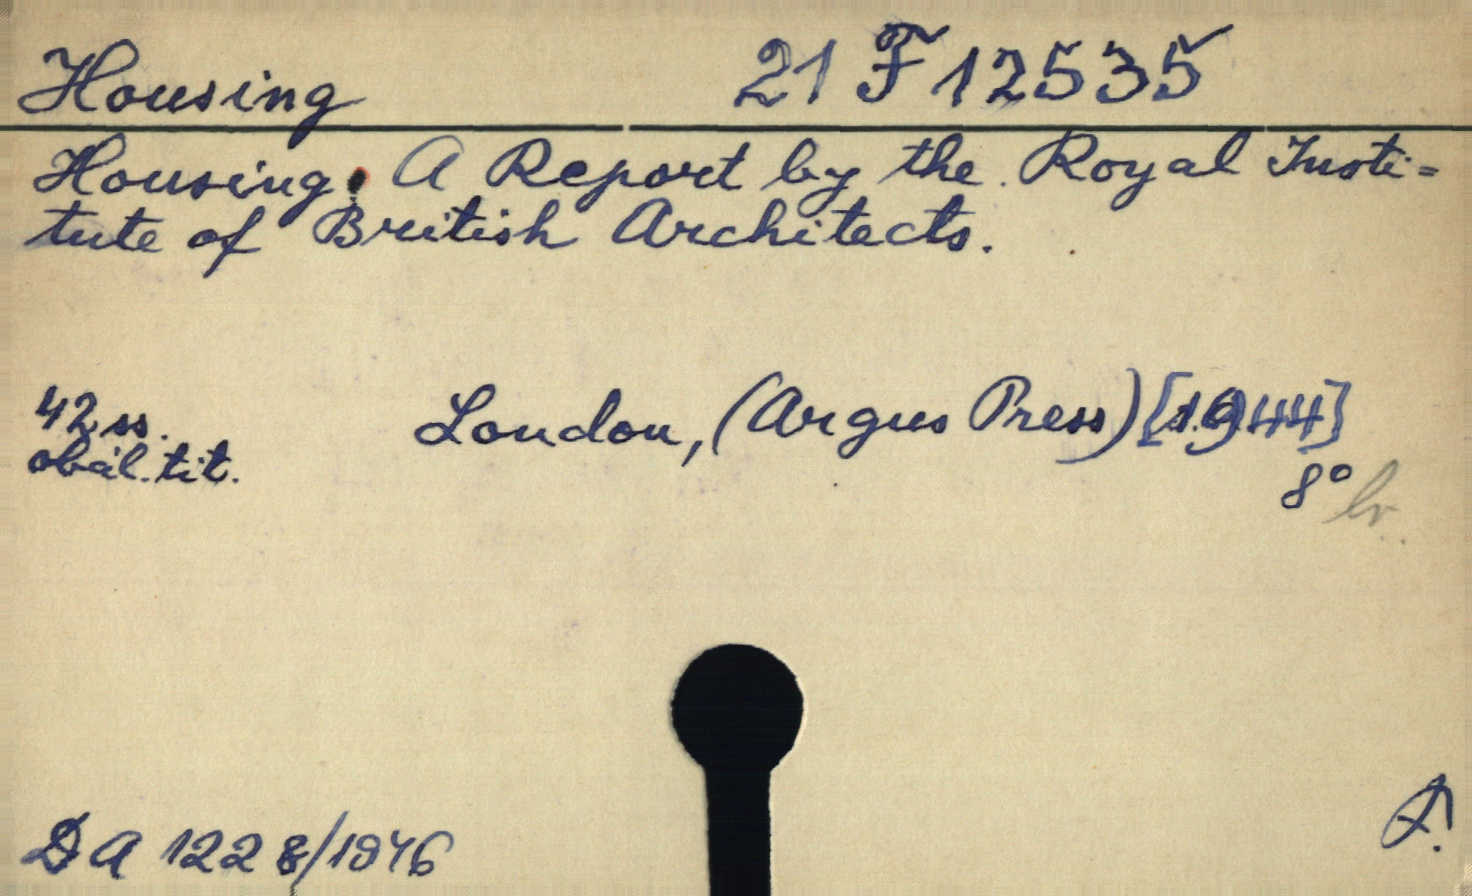 Housing 21 F 12535
Housing. A Report by the Royal Insti=
tute of British Architects.
42 ss. London, (Argus Press) [1944]
obál. tit.
8° br.
DA 1228/1946